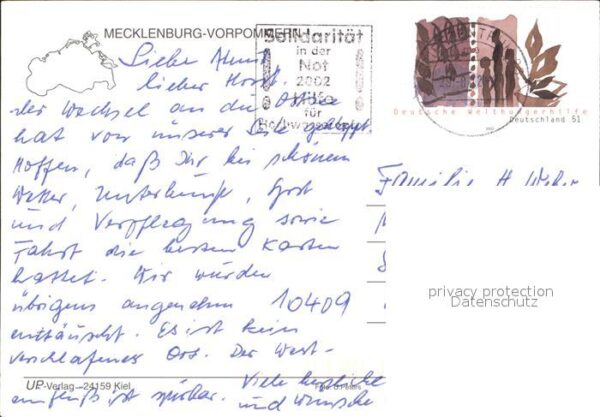 MECKLENBURG-VORPOMMERN
Solidarität
in der
Not
2002
Hilfe
für
Hochwasseropfer
Deutsche Welthungerhilfe
Deutschland 51
2002
Liebe
lieber Horst.
der Wechsel an die Ostsee
hat von unserer Seite geklappt
Hoffen, daß Ihr bei schönem
Wetter, Unterkunft,
und Verpflegung sowie
Fahrt die besten Karten
hattet. Wir wurden
übrigens angenehm
enttäuscht. Es ist kein
verschlafener Ort. Der West-
einfluß ist spürbar. Viele herzliche
und Wünsche
Familie H. Weber
10409
privacy protection
Datenschutz
UP-Verlag – 24159 Kiel